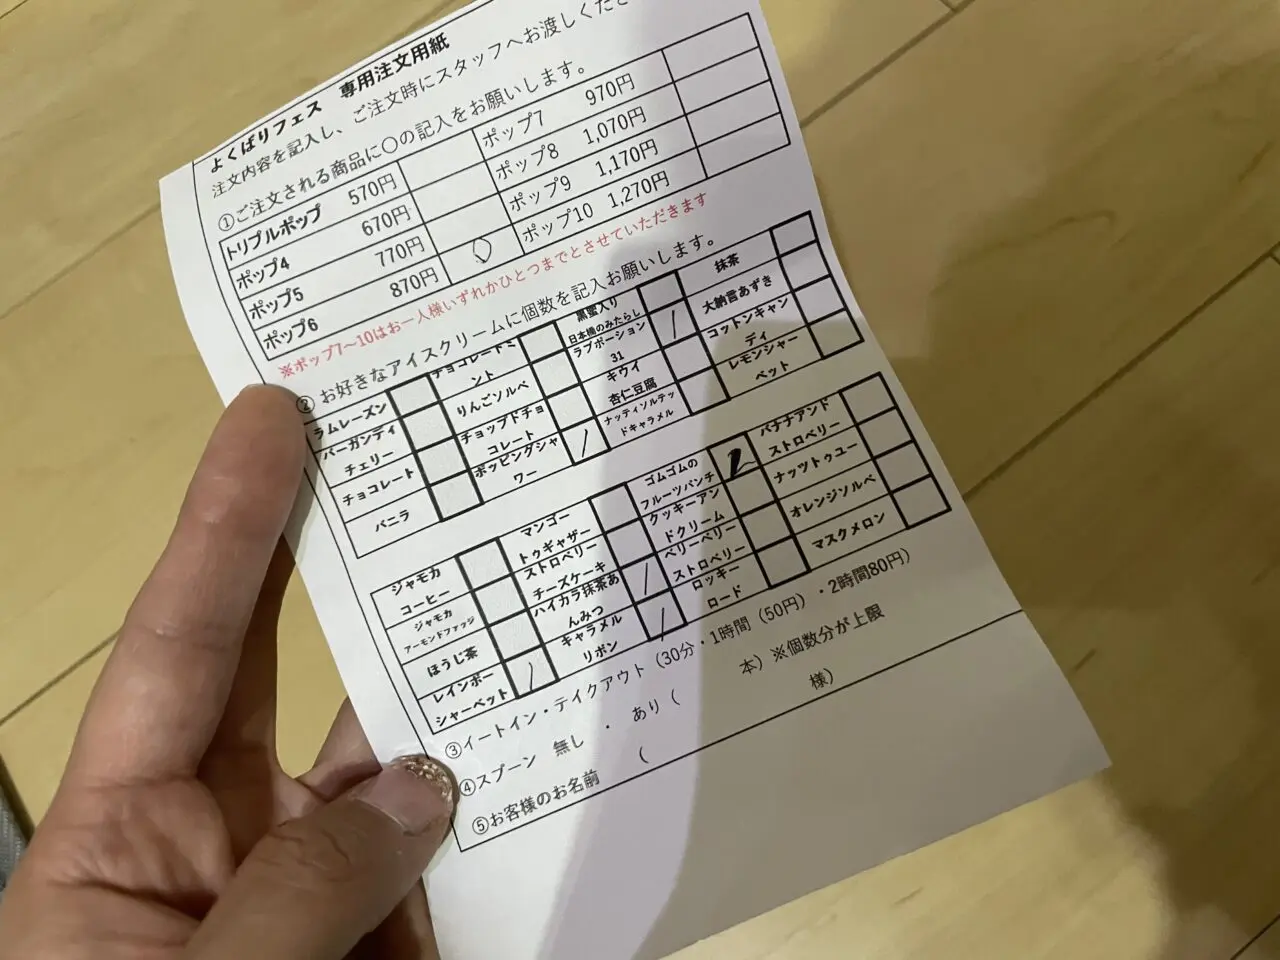 よくばりフェス 専用注文用紙
注文内容を記入し、ご注文時にスタッフへお渡しくださ
①ご注文される商品に〇の記入をお願いします。
トリプルポップ 570円
ポップ4 670円
ポップ5 770円
ポップ6 870円 ○
ポップ7 970円
ポップ8 1,070円
ポップ9 1,170円
ポップ10 1,270円
※ポップ7～10はお一人様いずれかひとつまでとさせていただきます
② お好きなアイスクリームに個数を記入お願いします。
ラムレーズン
バーガンディ
チェリー
チョコレート
バニラ
チョコレートミ
ント
りんごソルベ
チョップドチョ
コレート
ポッピングシャ
ワー /
黒蜜入り
日本橋のみたらし
ラブポーション
31 /
キウイ
杏仁豆腐
ナッティソルテッ
ドキャラメル
抹茶
大納言あずき
コットンキャン
ディ
レモンシャー
ベット
ジャモカ
コーヒー
ジャモカ
アーモンドファッジ
ほうじ茶
レインボー
シャーベット /
マンゴー
トゥギャザー
ストロベリー
チーズケーキ
ハイカラ抹茶あ
んみつ /
キャラメル
リボン /
ゴムゴムの
フルーツパンチ 2
クッキーアン
ドクリーム
ベリーベリー
ストロベリー
ロッキー
ロード
バナナアンド
ストロベリー
ナッツトゥユー
オレンジソルベ
マスクメロン
③イートイン・テイクアウト（30分・1時間（50円）・2時間80円）
④スプーン 無し ・ あり（ 本）※個数分が上限
⑤お客様のお名前 （ 様）